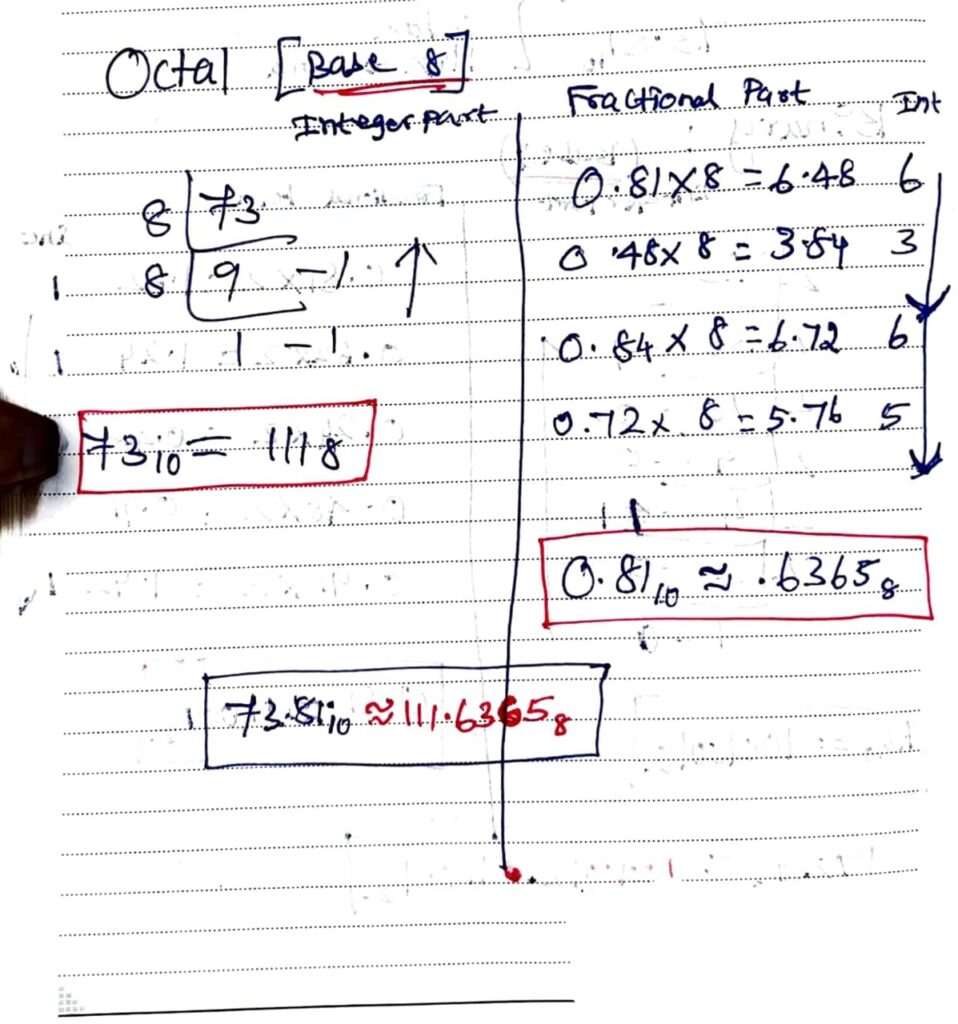 Octal [Base 8]
Integer part
8 73
8 9 - 1
1 - 1.
73₁₀ = 111₈
Fractional Part Int
0.81 x 8 = 6.48 6
0.48 x 8 = 3.84 3
0.84 x 8 = 6.72 6
0.72 x 8 = 5.76 5
0.81₁₀ ≈ .6365₈
73.81₁₀ ≈ 111.6365₈